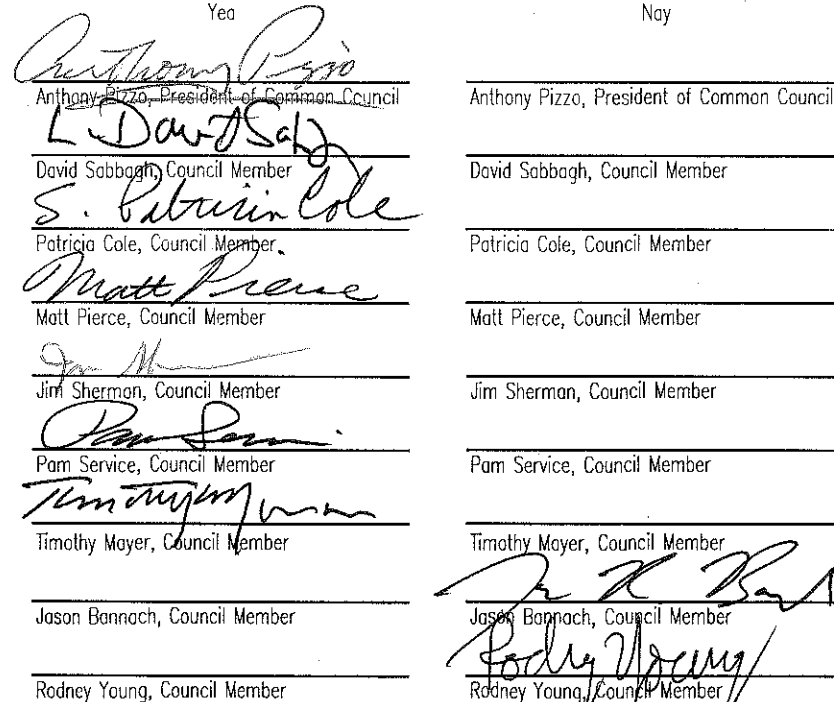 Yea
Anthony Pizzo
Anthony Pizzo, President of Common Council
L David Sabb
David Sabbagh, Council Member
S. Patricia Cole
Patricia Cole, Council Member
Matt Pierce
Matt Pierce, Council Member
Jim Sherman, Council Member
Pam Service, Council Member
Timothy Mayer, Council Member
Jason Bannach, Council Member
Rodney Young, Council Member
Nay
Anthony Pizzo, President of Common Council
David Sabbagh, Council Member
Patricia Cole, Council Member
Matt Pierce, Council Member
Jim Sherman, Council Member
Pam Service, Council Member
Timothy Mayer, Council Member
Jason Bannach, Council Member
Rodney Young
Rodney Young, Council Member